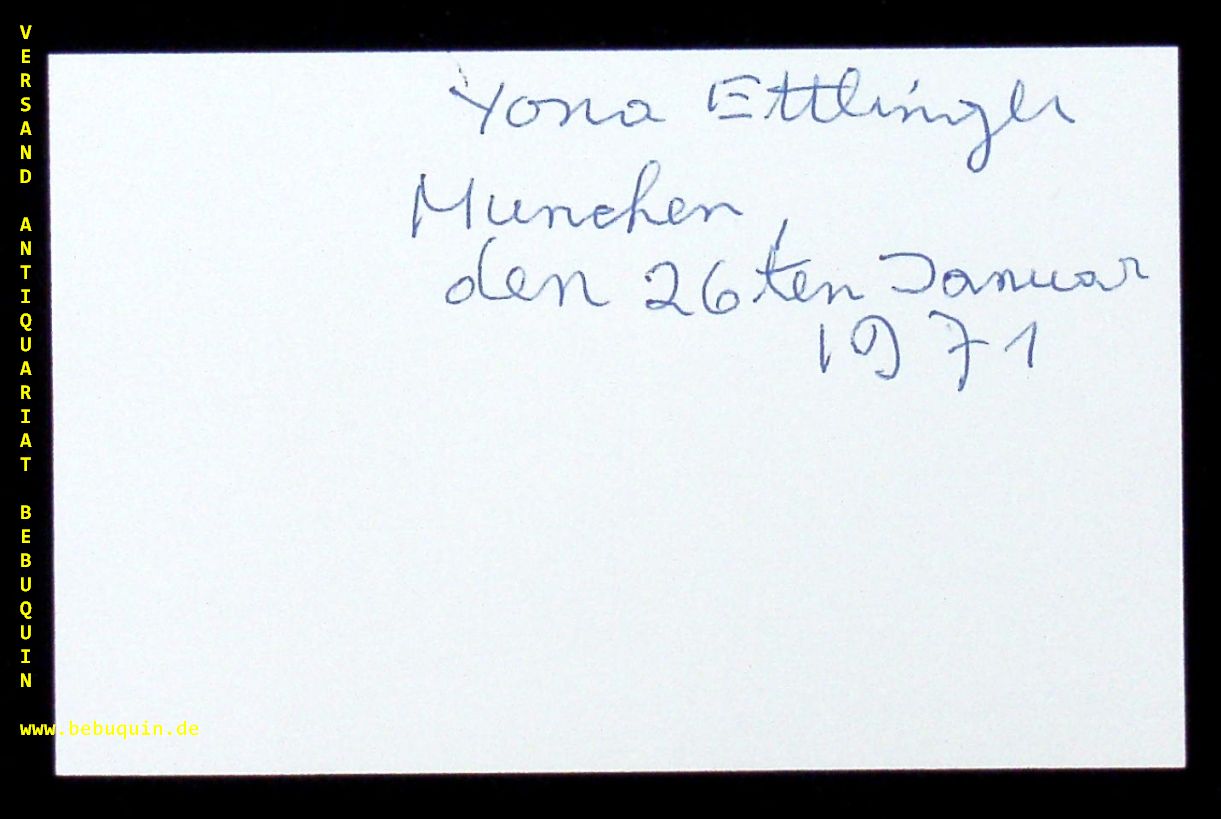 Yona Ettlinger
Munchen,
den 26ten Januar
1971
VERSAND ANTIQUARIAT BEBUQUIN
www.bebuquin.de